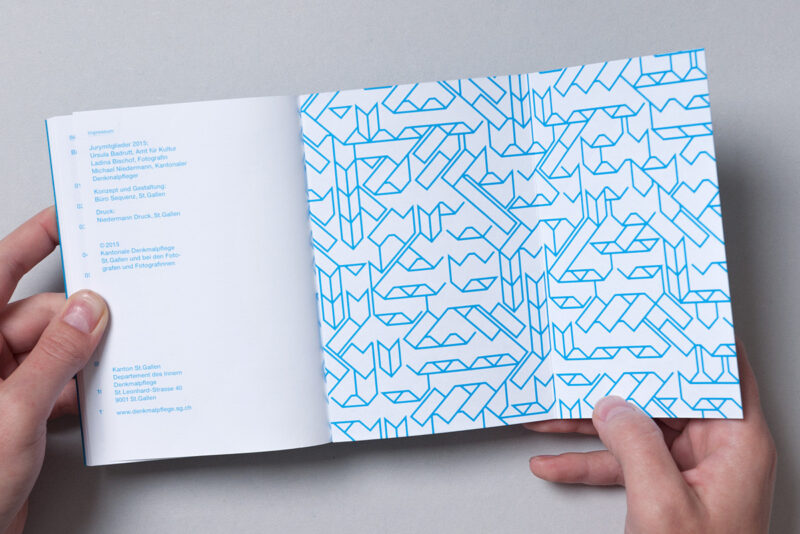 Impressum
Jurymitglieder 2015:
Ursula Badrutt, Amt für Kultur
Ladina Bischof, Fotografin
Michael Niedermann, Kantonaler
Denkmalpfleger
Konzept und Gestaltung:
Büro Sequenz, St.Gallen
Druck:
Niedermann Druck, St.Gallen
© 2015
Kantonale Denkmalpflege
St.Gallen und bei den Foto-
grafen und Fotografinnen
Kanton St.Gallen
Departement des Innern
Denkmalpflege
St.Leonhard-Strasse 40
9001 St.Gallen
www.denkmalpflege.sg.ch